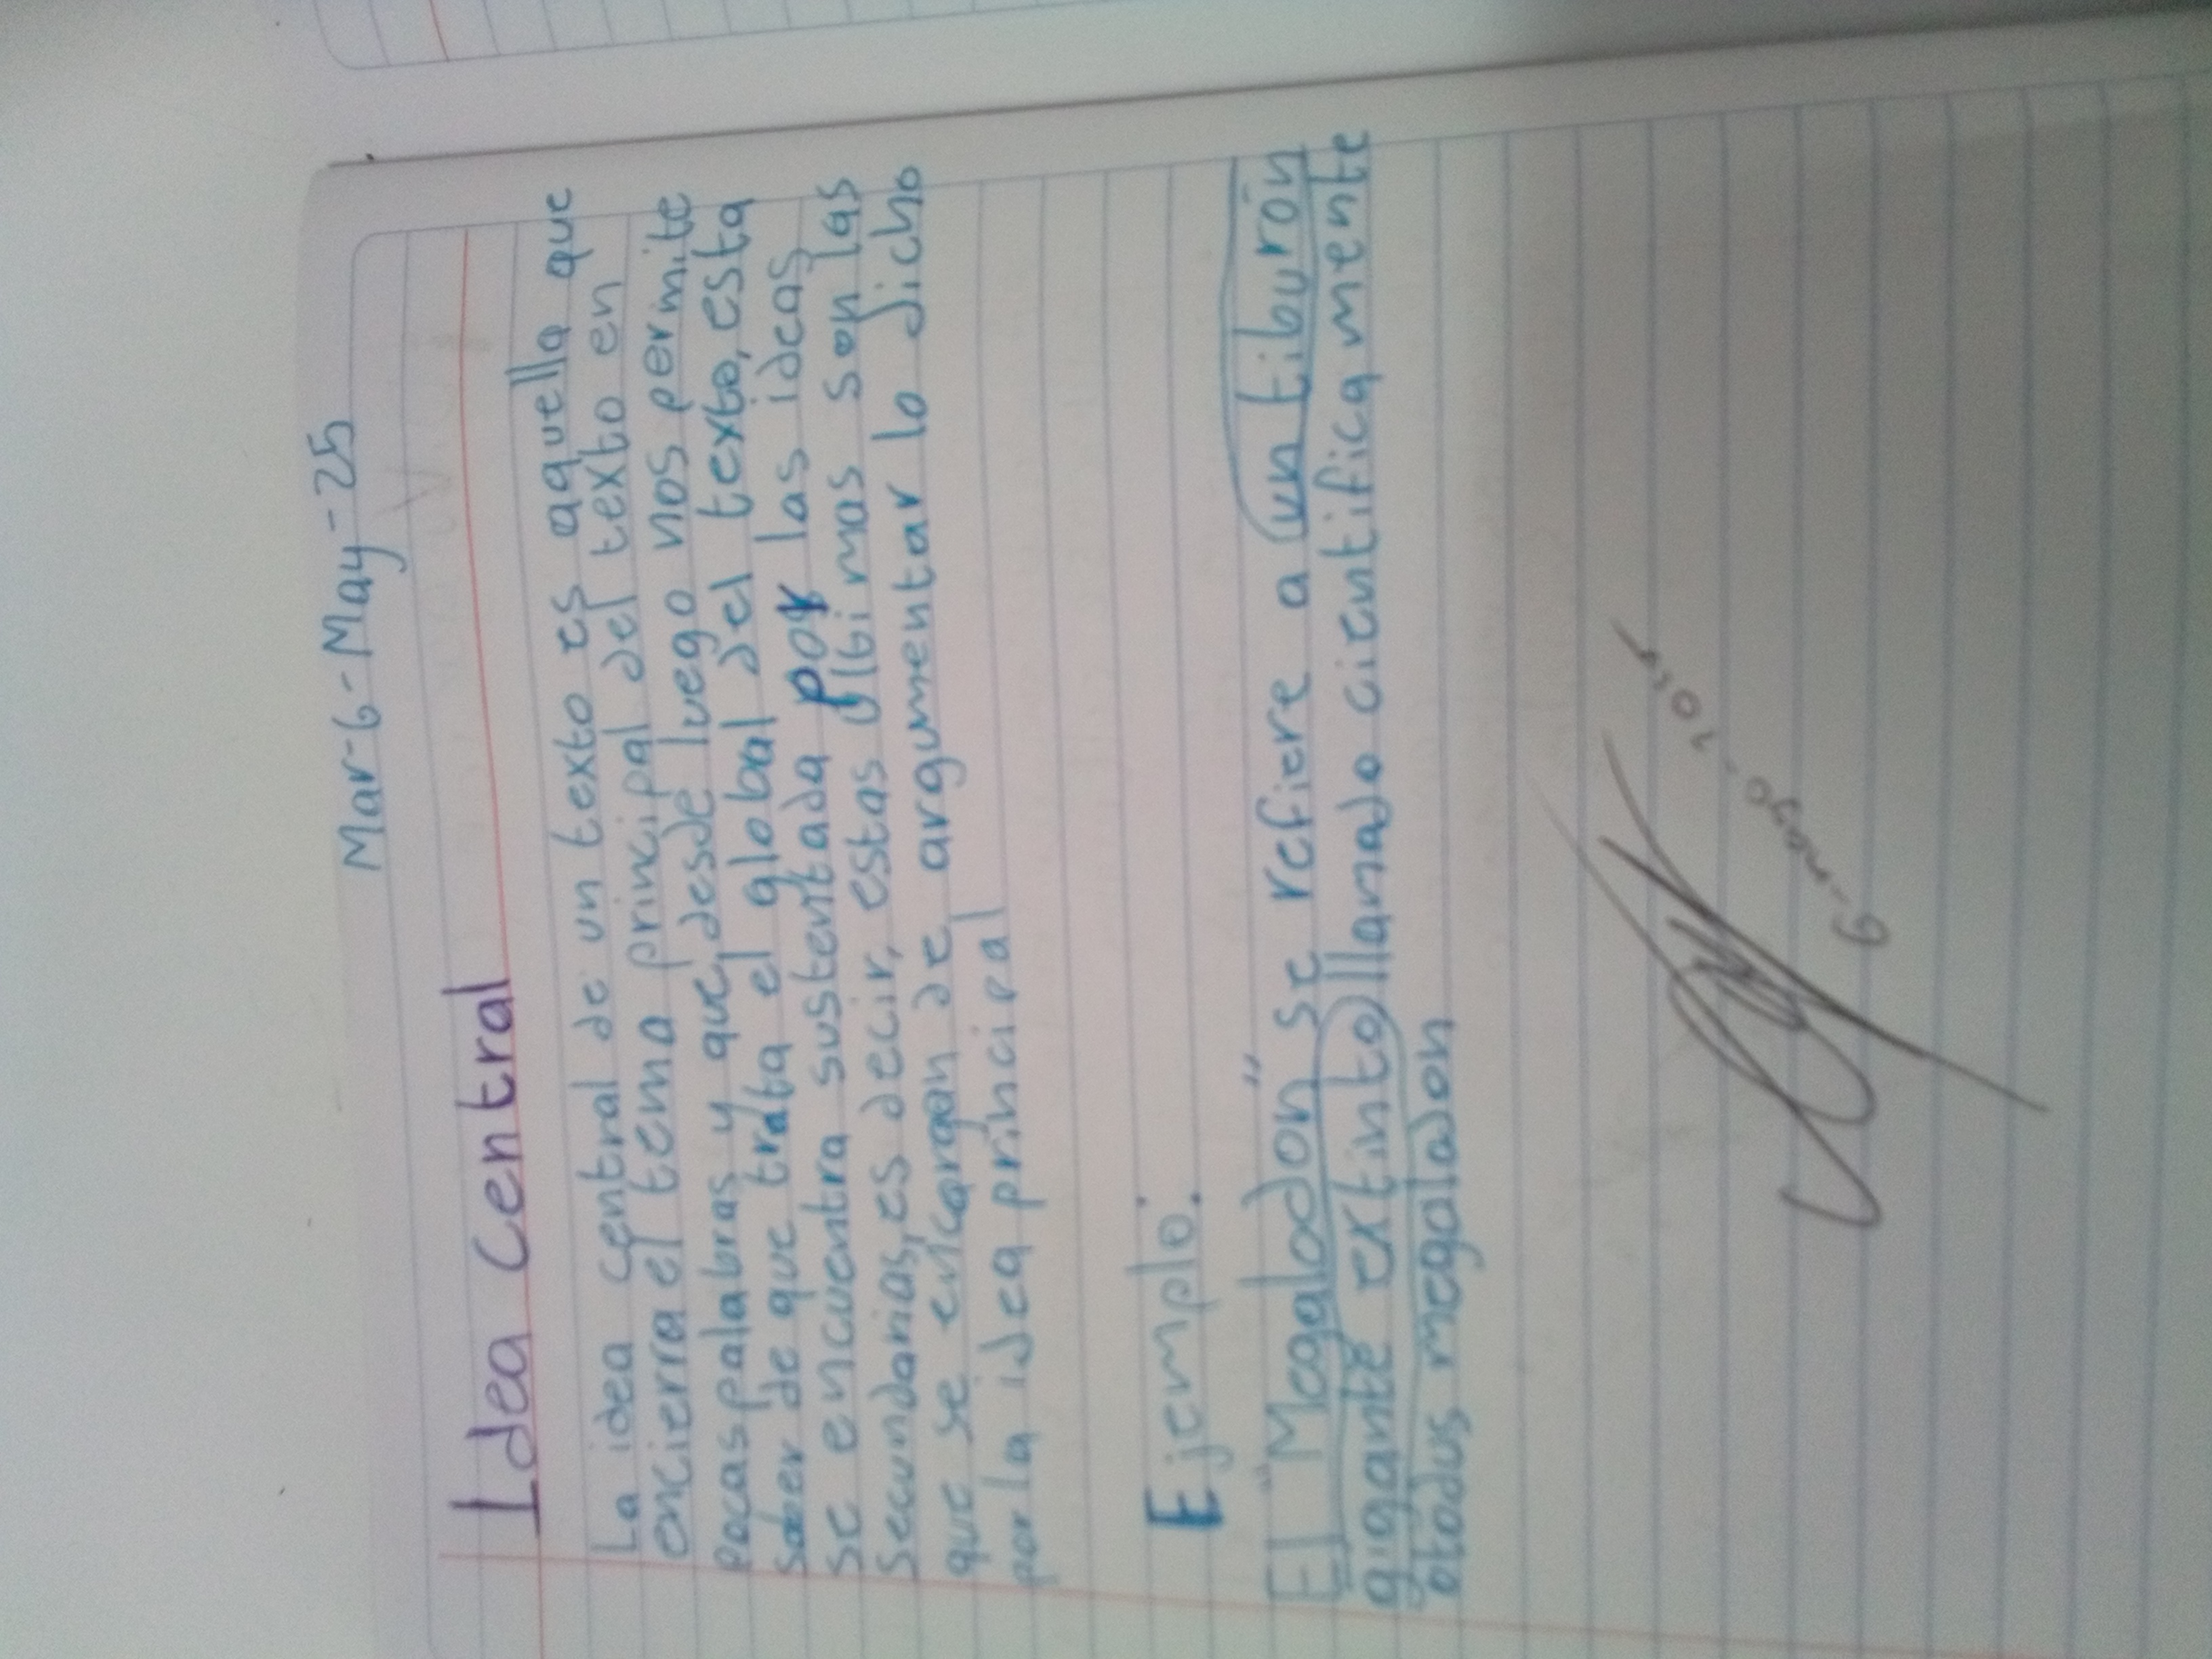 Mar-6-May-25
Idea Central
La idea central de un texto es aquella que
encierra el tema principal del texto en
pocas palabras y que, desde luego nos permite
saber de que trata el global del texto, esta
se encuentra sustentada por las ideas
secundarias, es decir, estas ultimas son las
que se encargan de argumentar lo dicho
por la idea principal
Ejemplo:
El "Megalodón" se refiere a un tiburón
gigante extinto llamado cientificamente
otodus megalodon
6-mayo-